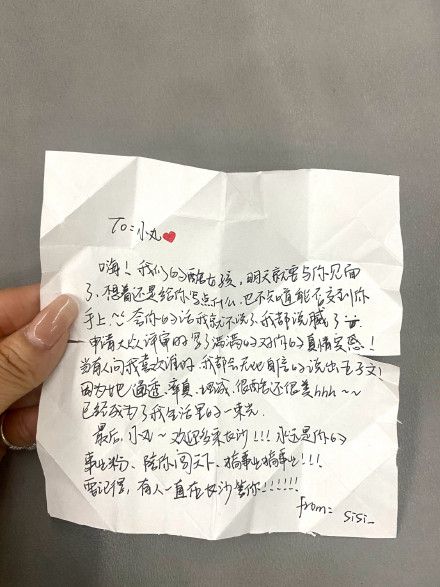 To=小丸❤
嗨！我们的酷女孩，明天就要与你见面
了，想着还是给你写点什么，也不知道能否交到你
手上^^ 夸你的话我就不说了，我都说腻了
申请大众评审时写了满满的对你的真情实感！
当有人问我喜欢谁时，我都会无比自信的说出
因为她通透、率真、坦诚、很酷还很美hhh~~
已经成为了我生活里的一束光
最后，小丸~欢迎来长沙！！！永远是你的
事业粉、陪你闯天下、搞事业搞事业！！！
要记得，有人一直在长沙等你！！！！！！
from= sisi_